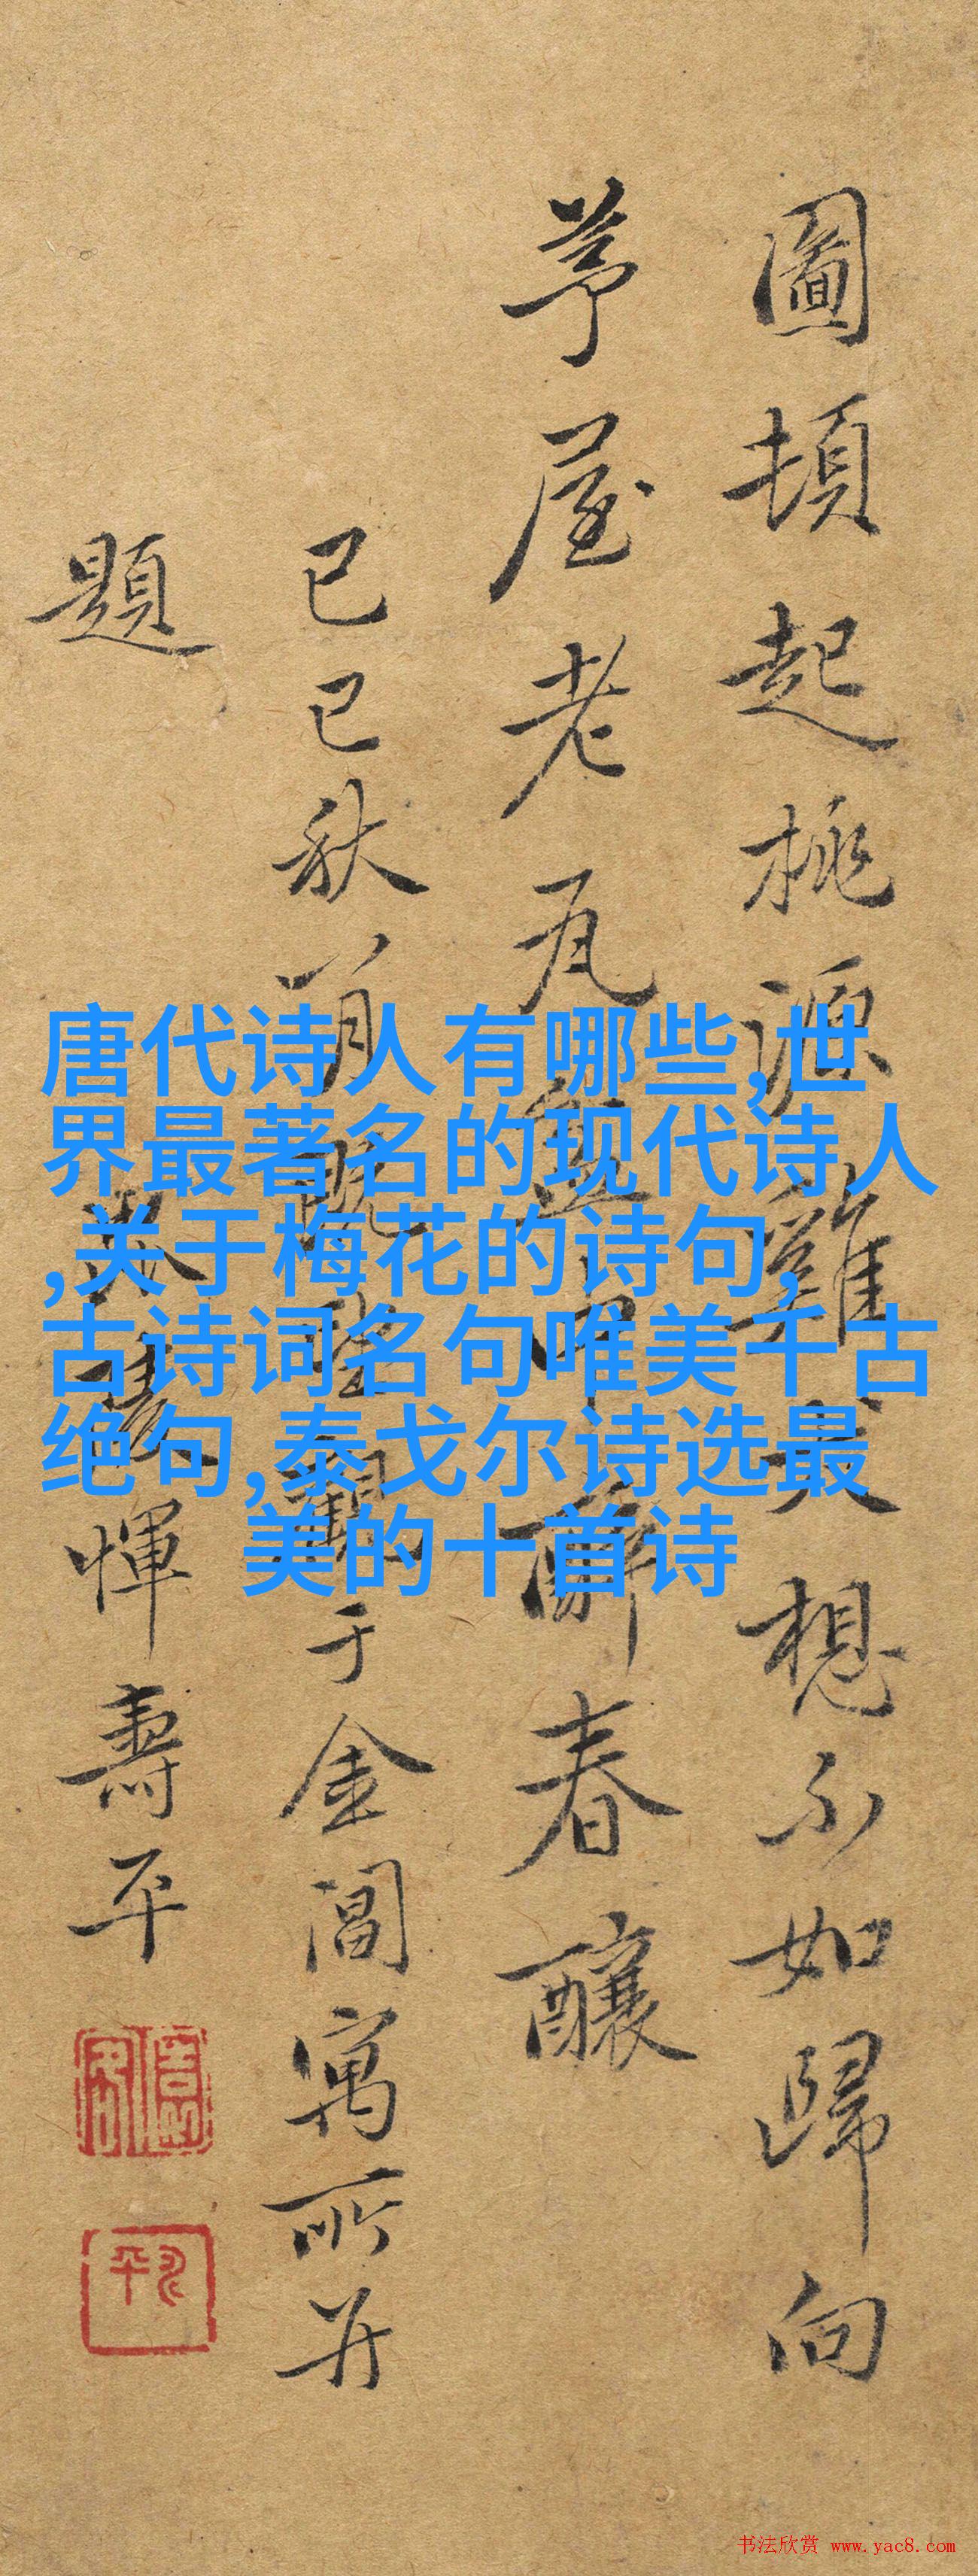 圖頓起桃源雞犬想不如歸向
茅屋老瓦盆中醉春釀
己巳秋八月既望觀于金閶寓所并
題
惲壽平
唐代诗人有哪些,世
界最著名的现代诗人
,关于梅花的诗句,
古诗词名句唯美千古
绝句,泰戈尔诗选最
美的十首诗
书法欣赏 www.yac8.com